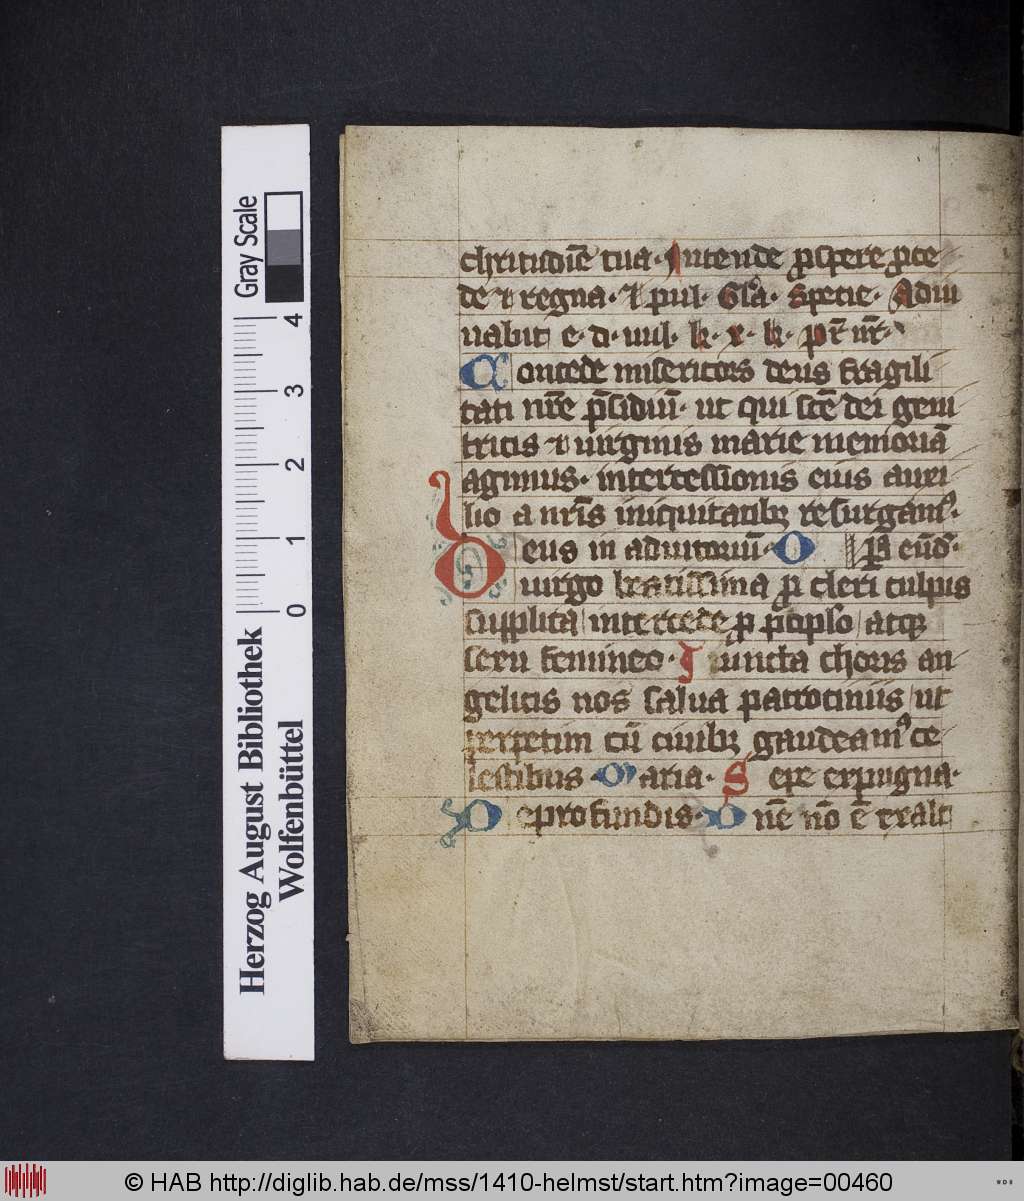 Gray Scale
4
3
2
1
0
Herzog August Bibliothek
Wolfenbüttel
chritudīe tua· Intende ꝓspere ꝓce
de ⁊ regna· Et pul· Glā· Specie· Adiu
uabit e· d· uul· k· x· k· pr̄ nr̄·
Concede misericors deus fragili
tati nr̄e p̄sidiū· ut qui scē dei geni
tricis ⁊ uirginis marie memoriā
agimus· intercessionis eius auxi
lio a nr̄is iniquitatibꝫ resurgamꝰ·
Deus in adiutoriū· O
uirgo beatissima ꝓ cleri culpis
supplica intercede ꝓ pciplo atqꝫ
sexu femineo· iuncta choris an
gelicis nos salua patrociniis ut
perpetim cū ciuibꝫ gaudeamꝰ ce
lestibus· Maria· Sepe expugna·
De profundis· Dnē nō ē exalt
© HAB http://diglib.hab.de/mss/1410-helmst/start.htm?image=00460